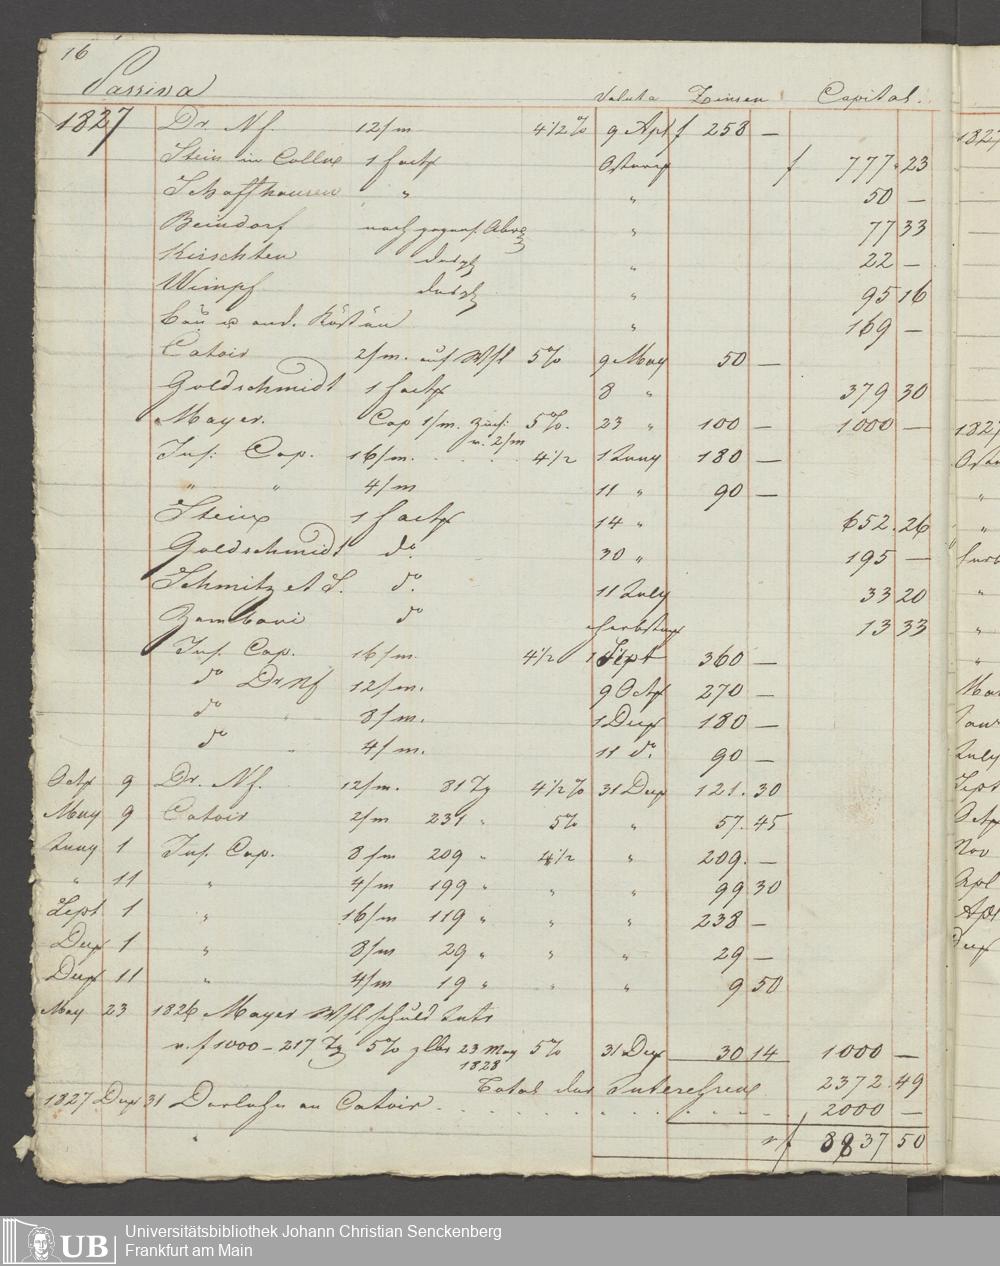 16
Passiva
Valuta Zinsen Capital.
1827 Dr. Nf. 12/m 4 1/2 % 9 Apl f 258 —
Stein in Cölln 1 fact Ostern f 777. 23
Schaffhausen " " 50 —
Beindorf nach " 77 33
Kirschten " 22 —
Wimpf " 95 16
Bau u and. Kösten " 169 —
Catoir 2/m. auf Wfl 5% 9 May 50 —
Goldschmidt 1 fact 8 " 379 30
Mayer. Cap 1/m. 5%. 23 " 100 — 1000 —
u. 2/m
Inf: Cap. 16/m. 4 1/2 1 Juny 180 —
" " 4/m 11 " 90 —
Stein 1 fact 14 " 652. 26
Goldschmidt do. 30 " 195 —
Schmitz et S. do. 11 July 33 20
Zamboni do 13 33
Inf. Cap. 16/m. 4 1/2 1 Sept 360 —
do Dr Nf 12/m. 9 Octr 270 —
do " 8/m. 1 Decr 180 —
do " 4/m. 11 do. 90 —
Octr 9 Dr. Nf. 12/m. 81 Tg 4 1/2 % 31 Decr 121. 30
May 9 Catoir 2/m 231 " 5% " 57. 45
Juny 1 Inf. Cap. 8/m 209 " 4 1/2 " 209. —
" 11 " 4/m 199 " " " 99 30
Sept 1 " 16/m 119 " " " 238 —
Decr 1 " 8/m 29 " " " 29 —
Decr 11 " 4/m 19 " " " 9 50
May 23 1826 Mayer Wfl schuld Intr
v. f 1000 — 217 Tg 5% 23 May 5% 31 Decr 30 14 1000 —
1828
Total der Interessen 2372. 49
1827 Decr 31 Darlehn an Catoir 2000 —
f 8837 50
Universitätsbibliothek Johann Christian Senckenberg
Frankfurt am Main
UB